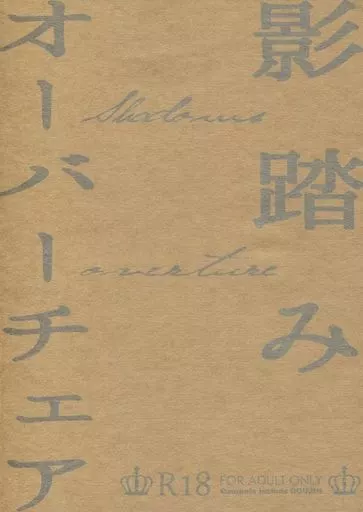 影踏み
オーバーチェア
Shadows
overture
R18
FOR ADULT ONLY